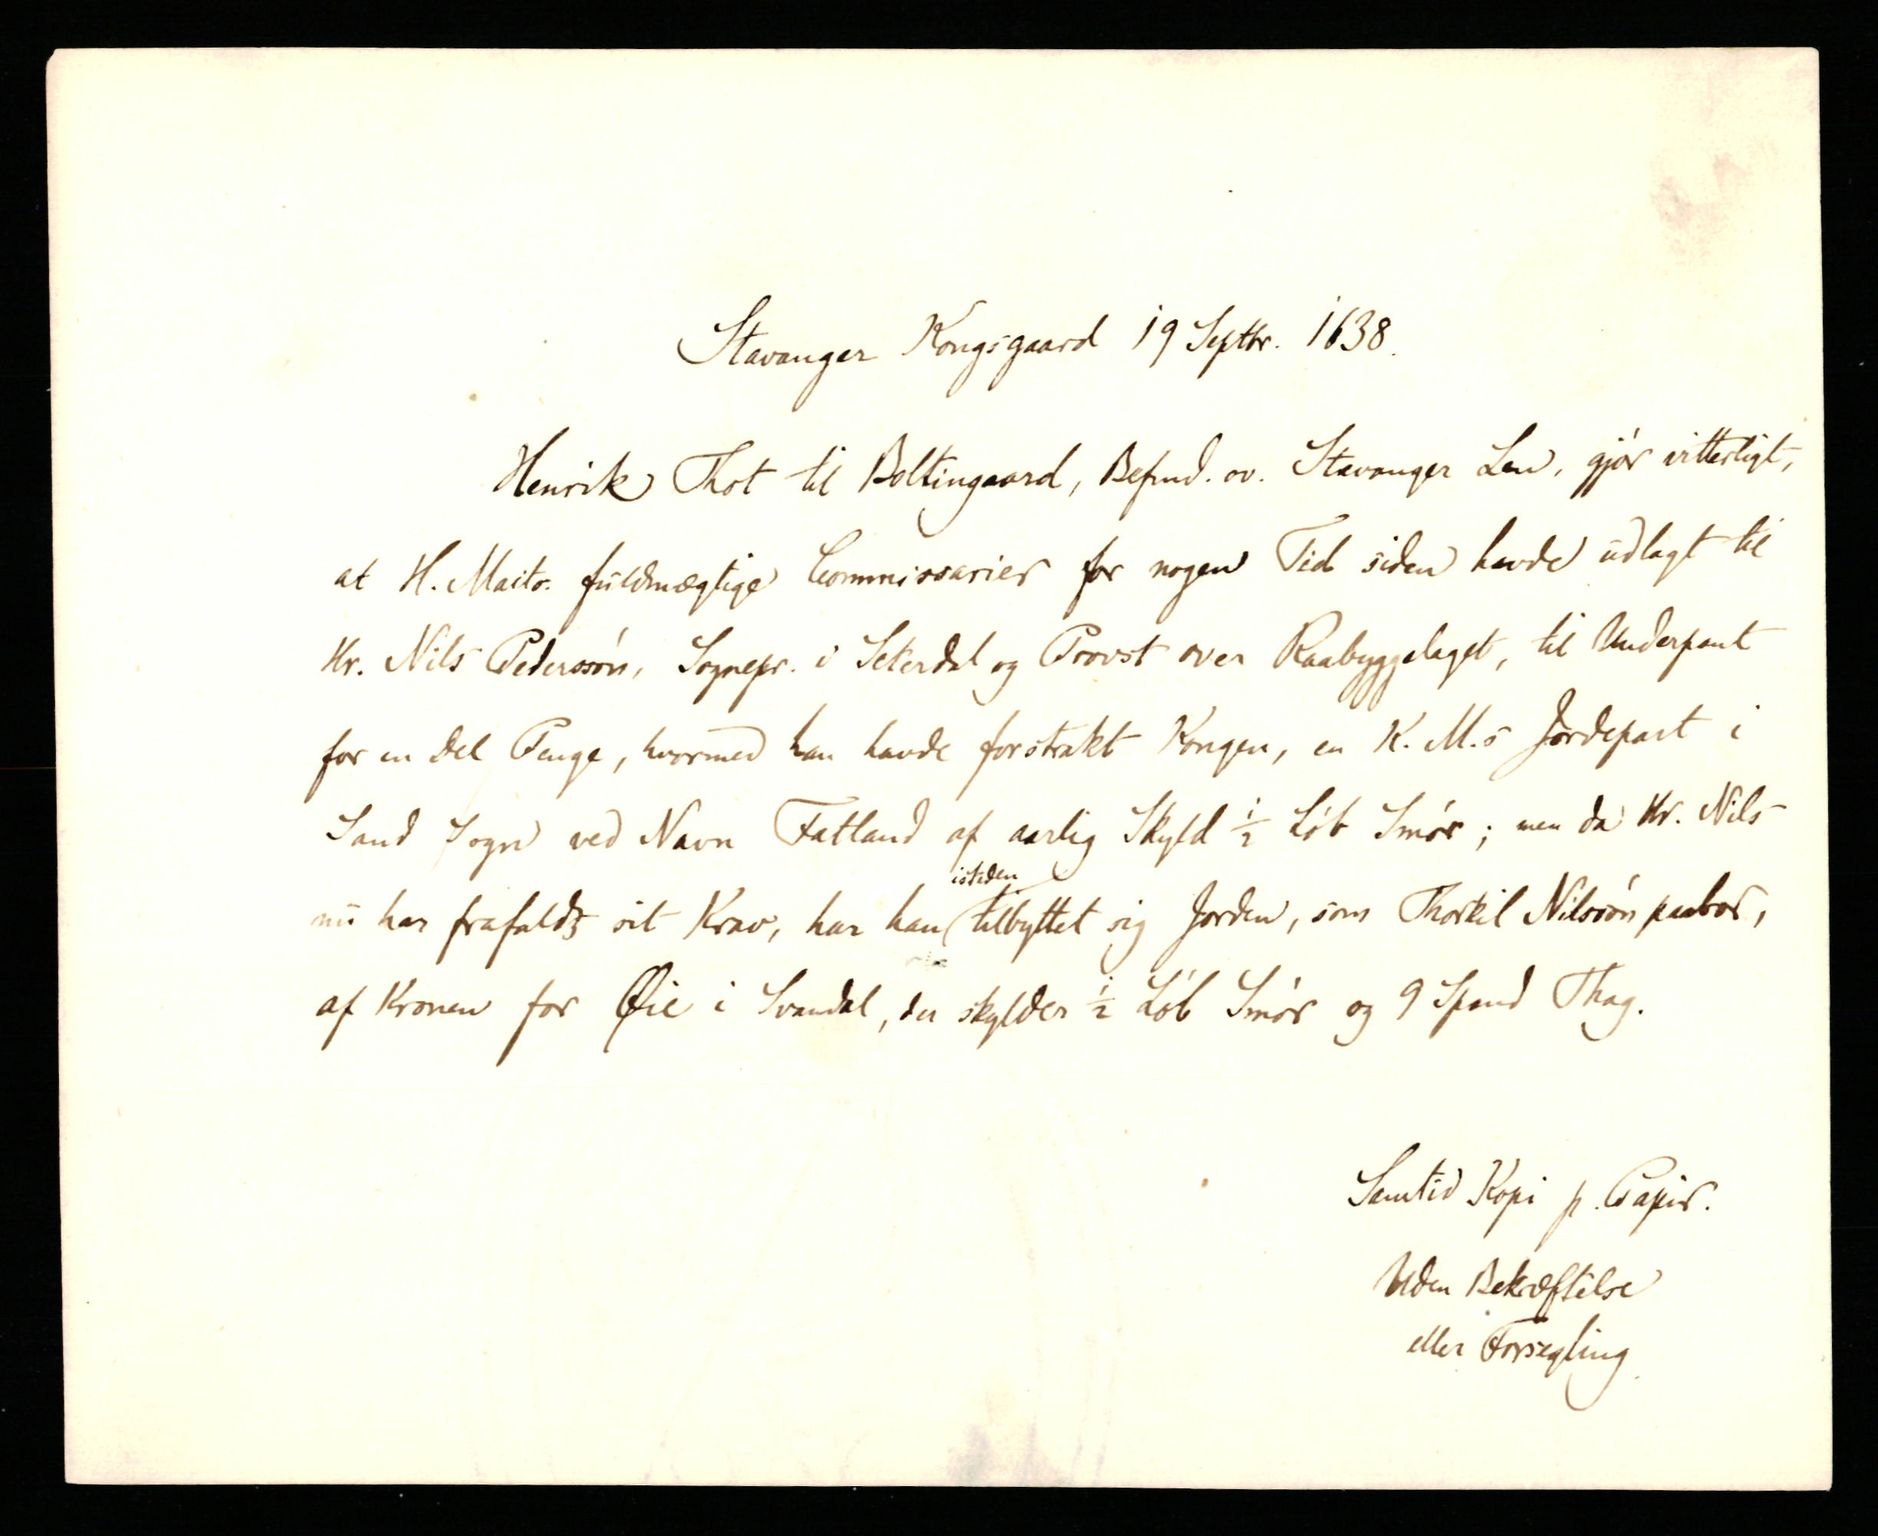 Stavanger Kongsgaard 19 Septbr. 1638.
Henrik Thot til Boltingaard, Befmd. ov. Stavanger Len, gjør vitterligt,
at H. Maits. fuldmægtige Commissarier for nogen Tid siden havde udlagt til
Hr. Nils Pederssøn, Sognepr. i Seterdal og Provst over Raabyggelaget, til Underpant
for en Del Penge, hvormed han havde forstrakt Kongen, en K. M.s Jordepart i
Sand Sogn ved Navn Fatland af aarlig Skyld ½ Løb Smør; men da Hr. Nils
isteden
nu har frafaldt sit Krav, har han tilbyttet sig Jorden, som Thorkil Nilssøn paabor,
af Kronen for Øie i Svandal, der skylder ½ Løb Smør og 9 Spand Thag.
Samtid Kopi p. Papir.
Uden Bekræftelse
eller Forsegling.